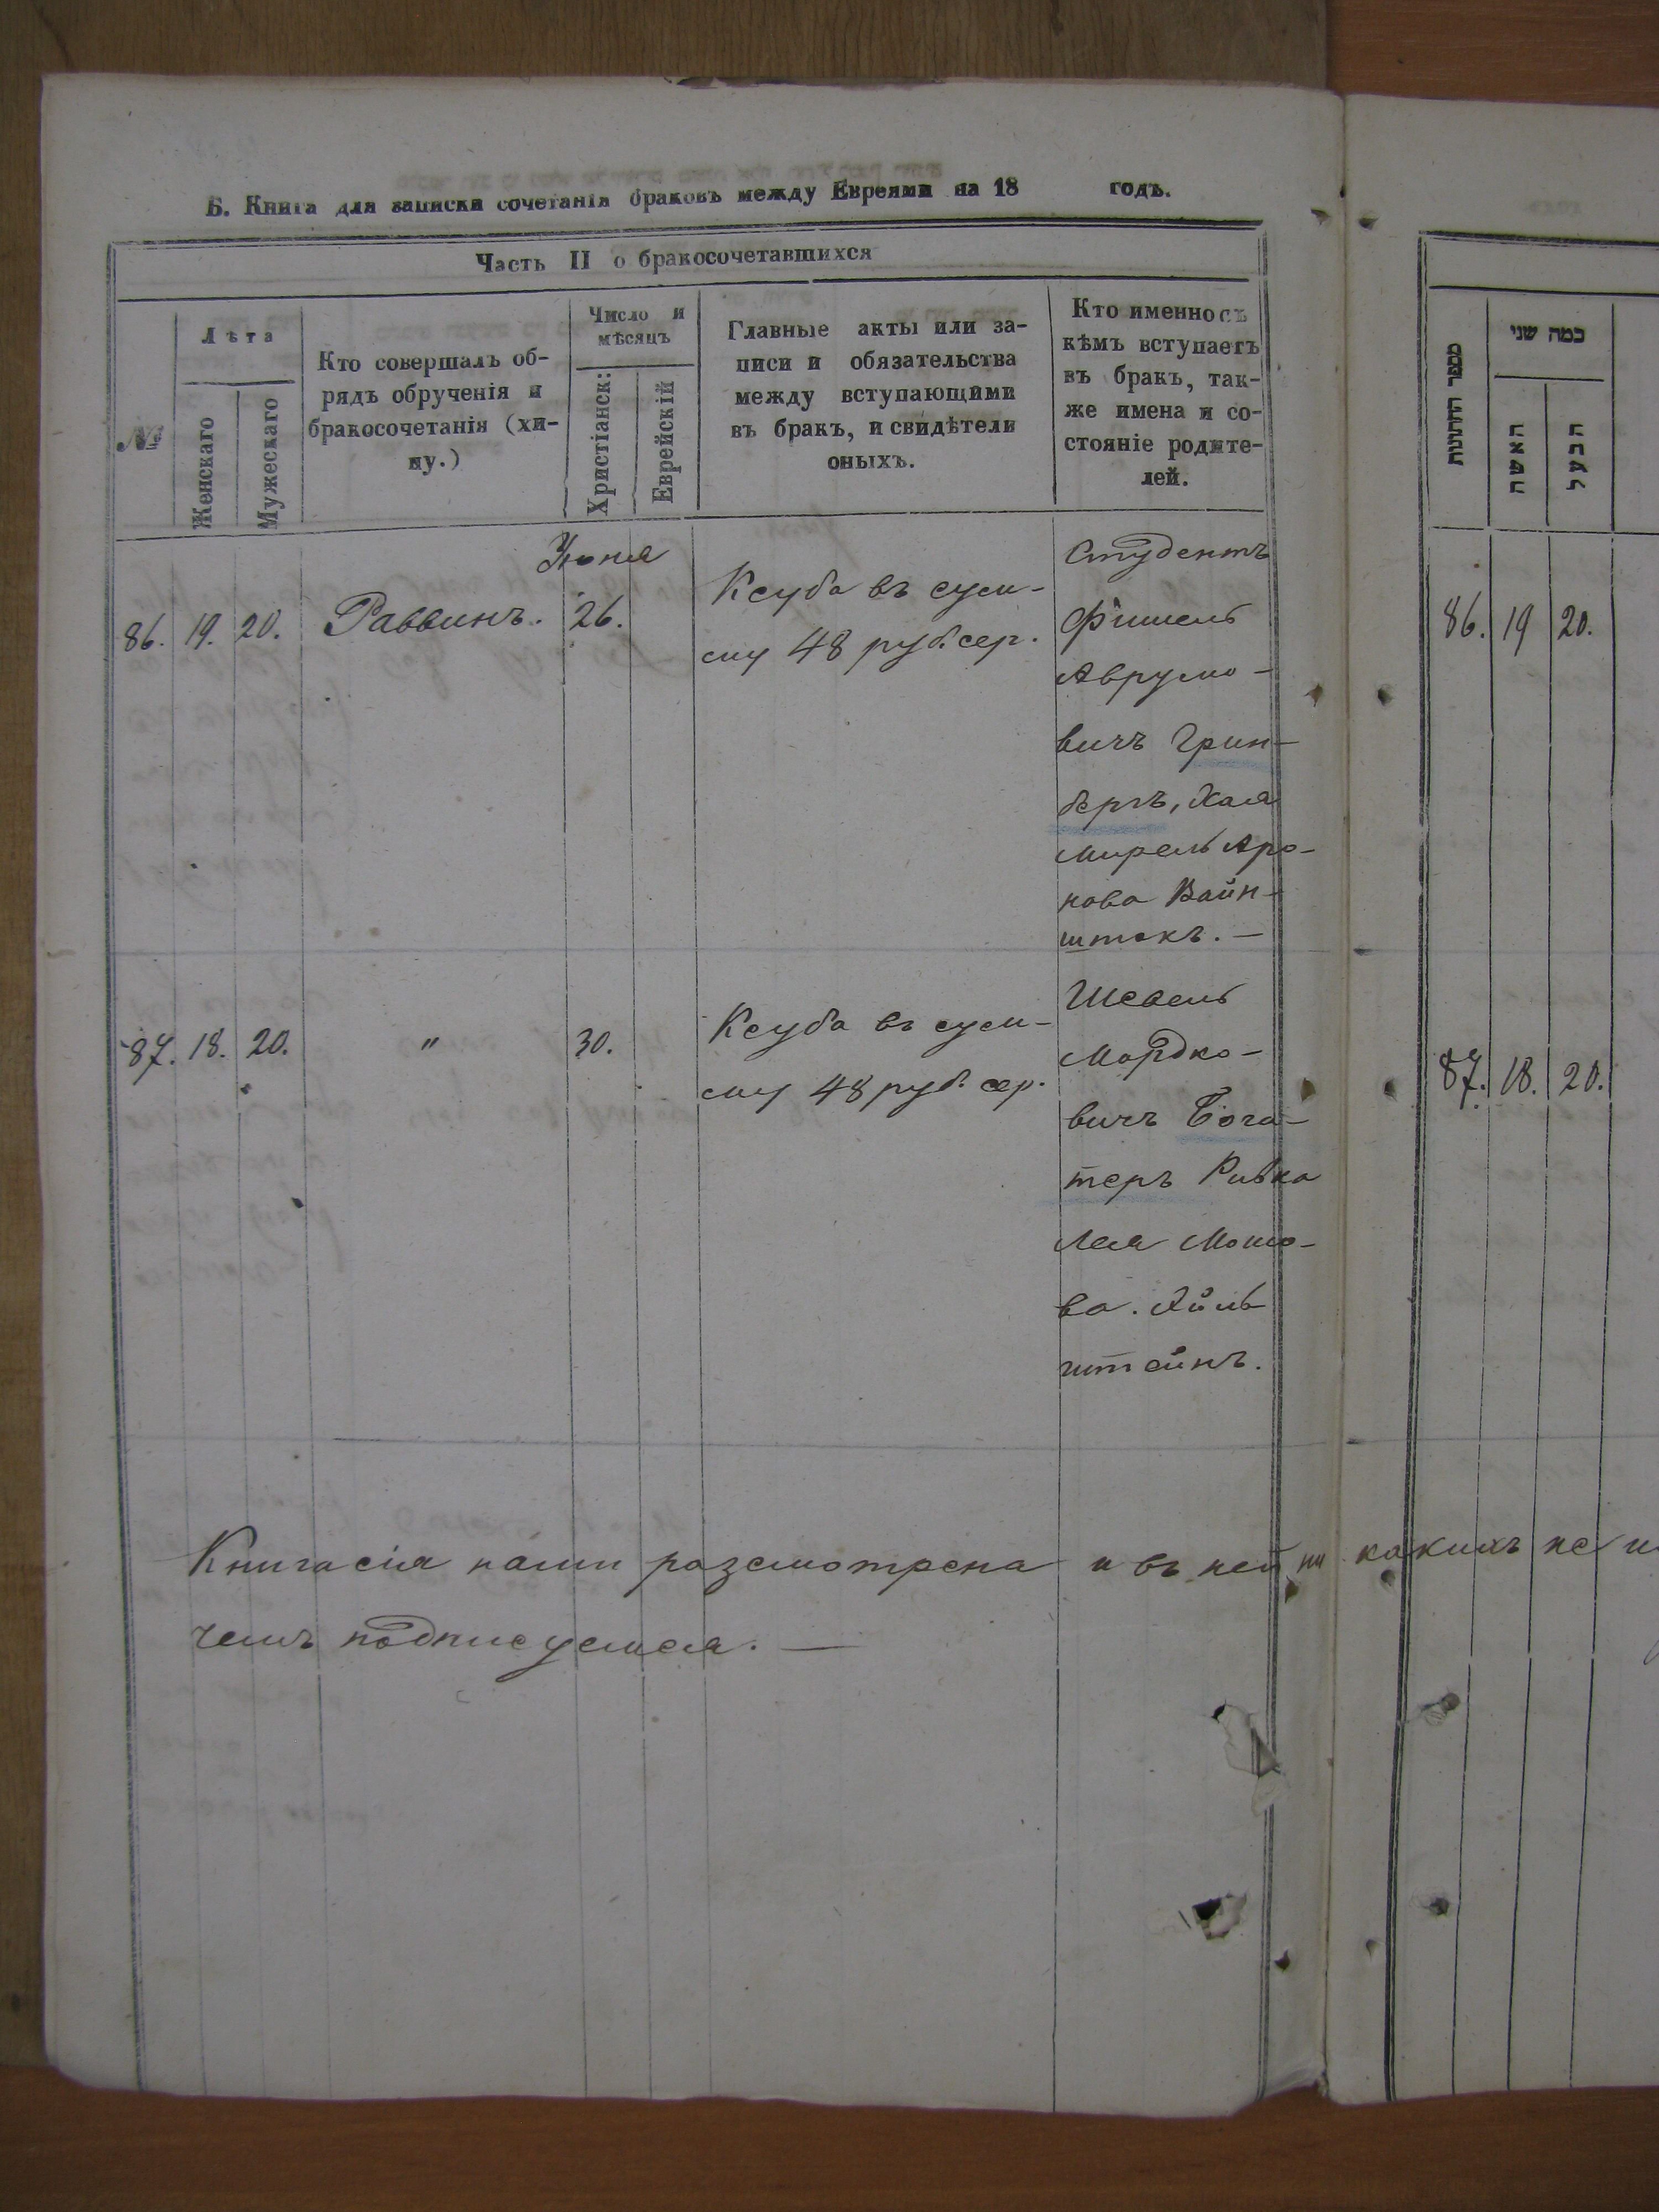 Б. Книга для записки сочетанія браковъ между Евреями на 18 годъ.
Часть II о бракосочетавшихся
№
Лѣта
Женскаго
Мужескаго
Кто совершалъ об-
рядъ обрученія и
бракосочетанія (хи-
пу.)
Число и
мѣсяцъ
Христіанск:
Еврейскій
Главные акты или за-
писи и обязательства
между вступающими
въ бракъ, и свидѣтели
оныхъ.
Кто именно съ
кѣмъ вступаетъ
въ бракъ, так-
же имена и со-
стояніе родите-
лей.
86. 19. 20. Раввинъ. Іюня 26.
Ксуба въ сум-
му 48 руб. сер.
Студентъ
Фишель
Аврумо-
вичъ Грин-
бергъ, Хая
Мирель Аро-
нова Вайн-
штокъ. —
87. 18. 20. " 30.
Ксуба въ сум-
му 48 руб. сер.
Шевель
Мордко-
вичъ Бога-
теръ Ривка
Лея Мошо-
ва. Айль
штейнъ.
Книга сія нами разсмотрена и въ ней ни какихъ не
чемъ подписуемся. —
מספר החתונות
כמה שני
האשה
הבעל
86. 19 20.
87. 18. 20.